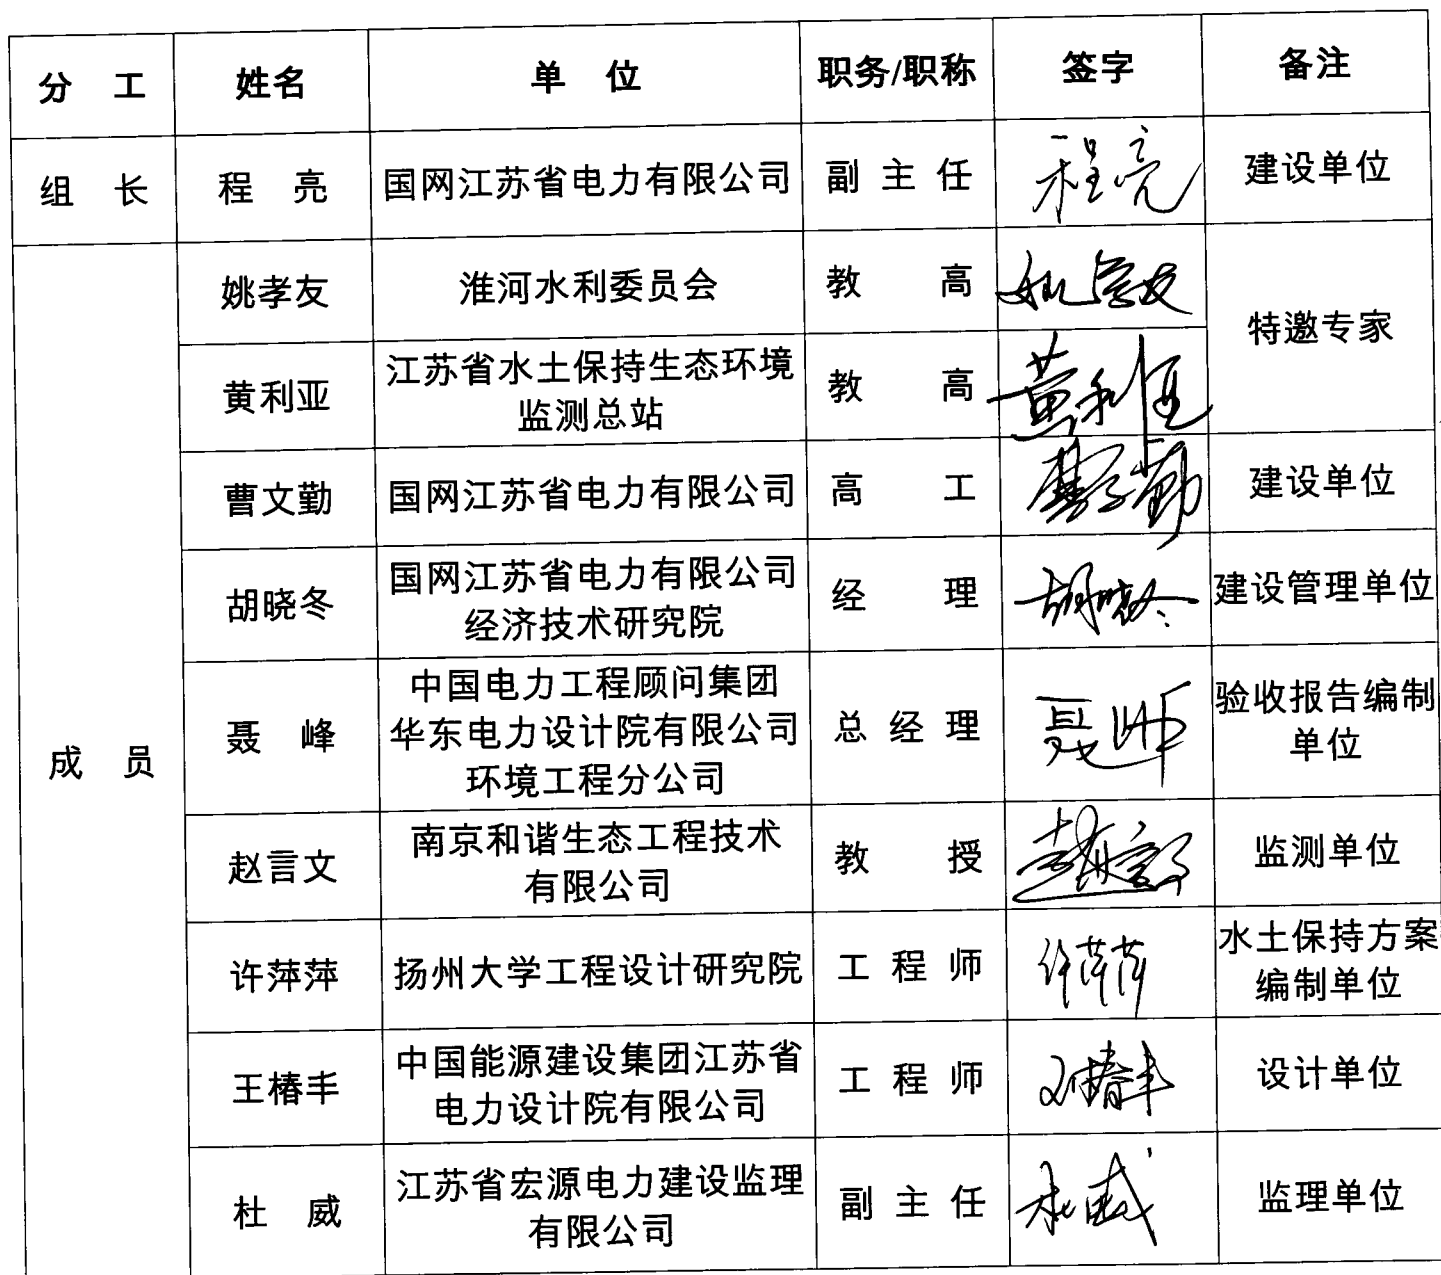 分 工 姓名 单 位 职务/职称 签字 备注
组 长 程 亮 国网江苏省电力有限公司 副 主 任 程亮 建设单位
成 员
姚孝友 淮河水利委员会 教 高 姚孝友
特邀专家
黄利亚 江苏省水土保持生态环境
监测总站 教 高 黄利亚
曹文勤 国网江苏省电力有限公司 高 工 曹文勤 建设单位
胡晓冬 国网江苏省电力有限公司
经济技术研究院 经 理 胡晓冬 建设管理单位
聂 峰 中国电力工程顾问集团
华东电力设计院有限公司
环境工程分公司 总 经 理 验收报告编制
单位
赵言文 南京和谐生态工程技术
有限公司 教 授 赵言文 监测单位
许萍萍 扬州大学工程设计研究院 工 程 师 许萍萍 水土保持方案
编制单位
王椿丰 中国能源建设集团江苏省
电力设计院有限公司 工 程 师 王椿丰 设计单位
杜 威 江苏省宏源电力建设监理
有限公司 副 主 任 杜威 监理单位